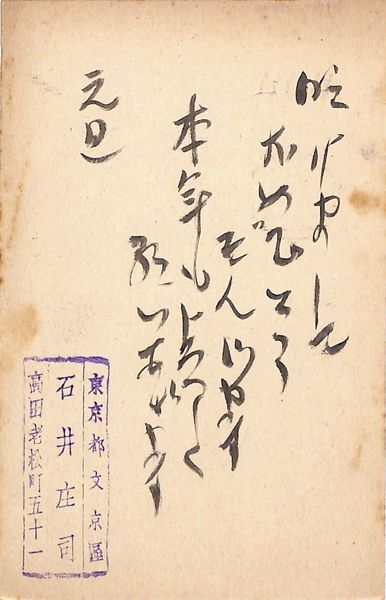 明けまして
おめでとう
ぞんじます
本年もよろしく
願いあげます
元旦
東京都文京區
石井庄司
高田老松町五十一